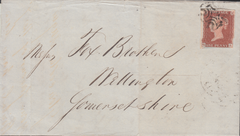 Messrs Fox Brothers
Wellington
Somersetshire